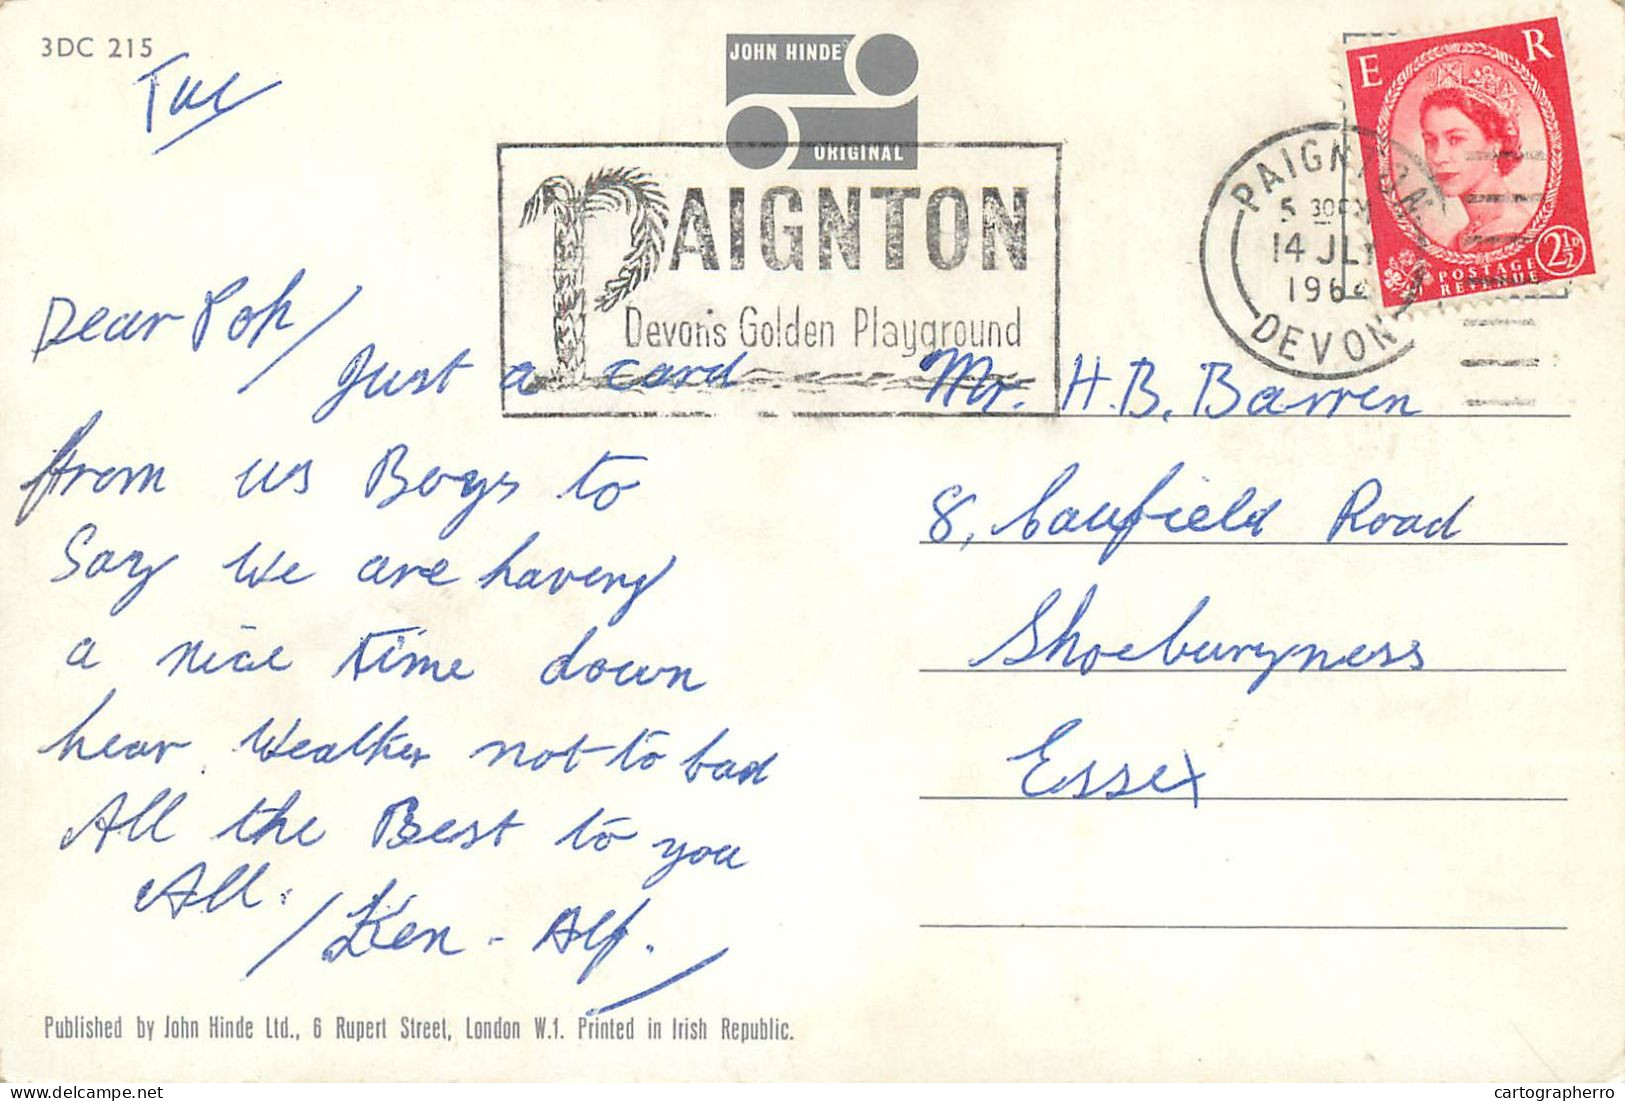 3DC 215
Tue
JOHN HINDE
ORIGINAL
PAIGNTON
Devon's Golden Playground
PAIGNTON
5 30 PM
14 JLY
1964
DEVON
E R
POSTAGE
REVENUE
2½D
Dear Pop/
Just a card
from us Boys to
Say We are having
a nice time down
hear Weather not to bad
All the Best to you
All.
/Ken - Alf./
Mr. H.B. Barren
8, Caufield Road
Shoeburyness
Essex
Published by John Hinde Ltd., 6 Rupert Street, London W.1. Printed in Irish Republic.
cartographerro